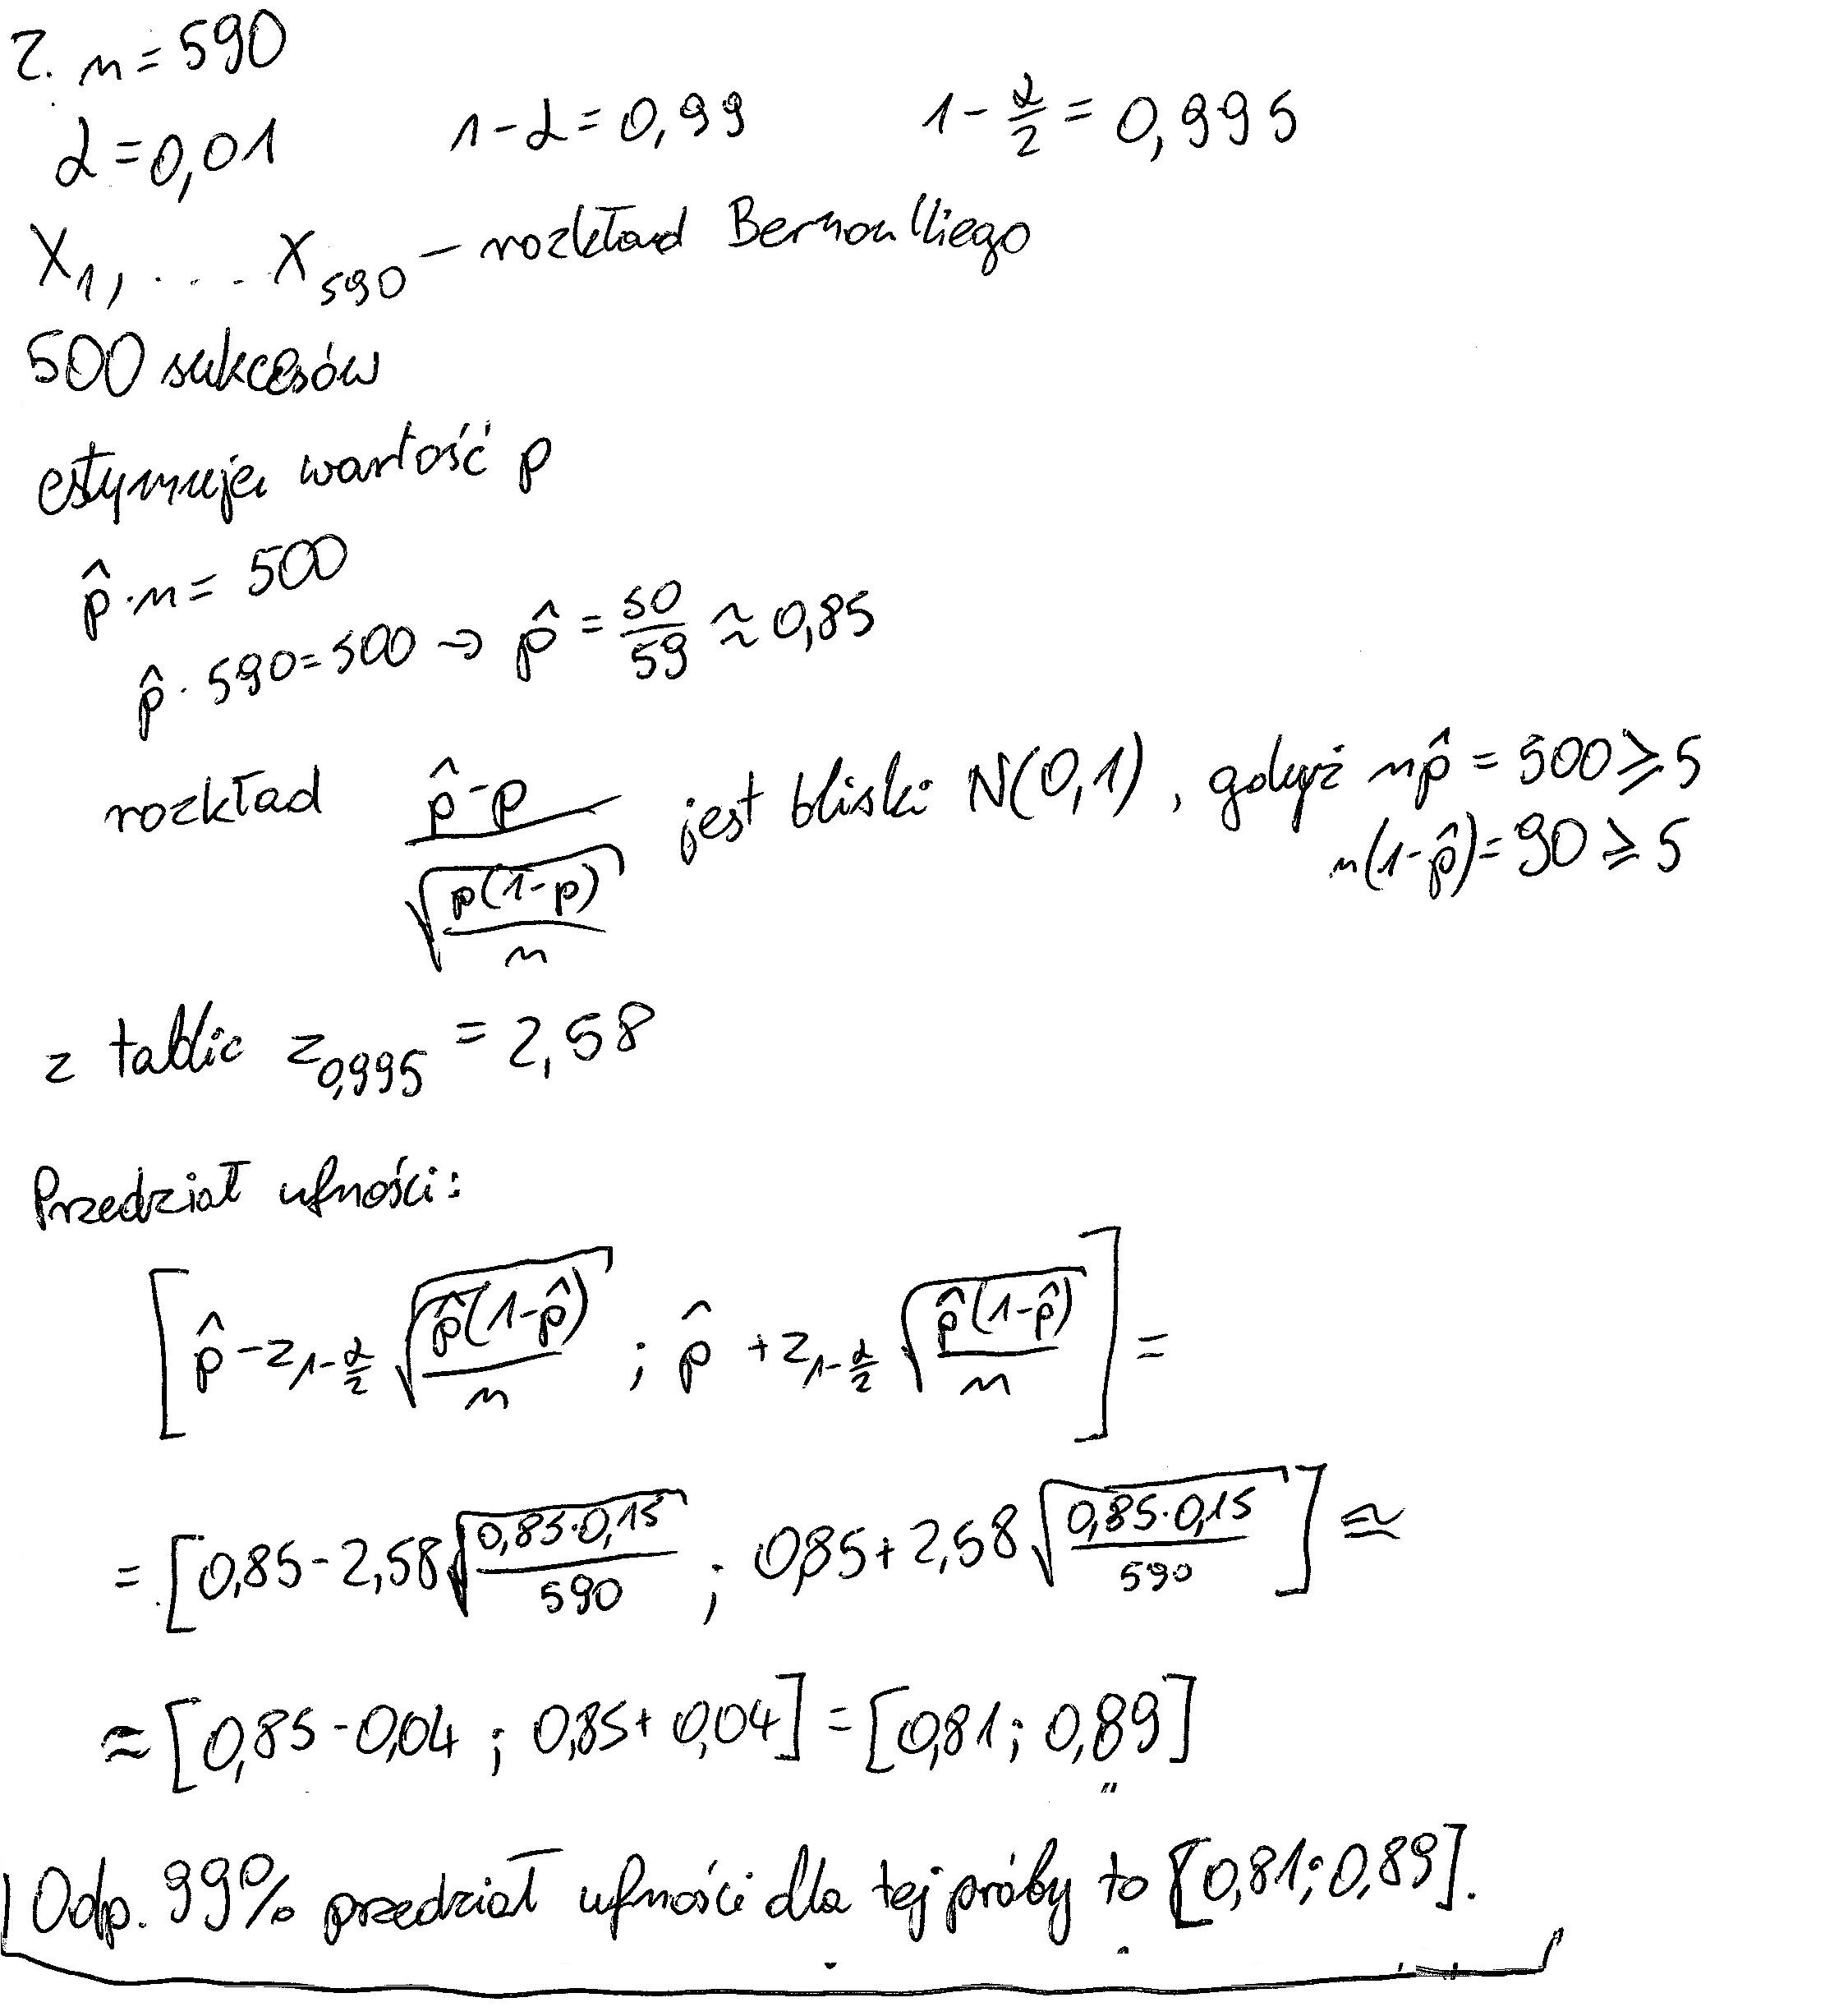 2. n = 590
α = 0,01 1-α = 0,99 1-α/2 = 0,995
X₁, .... X₅₉₀ – rozkład Bernoulliego
500 sukcesów
estymuję wartość p
p̂·n = 500
p̂·590 = 500 → p̂ = 50/59 ≈ 0,85
rozkład (p̂-p)/√(p(1-p)/n) jest bliski N(0,1), gdyż np̂ = 500 ≥ 5
n(1-p̂) = 90 ≥ 5
z tablic z₀,₉₉₅ = 2,58
Przedział ufności:
[p̂ - z_{1-α/2} √(p̂(1-p̂)/n) ; p̂ + z_{1-α/2} √(p̂(1-p̂)/n)] =
= [0,85 - 2,58 √(0,85·0,15/590) ; 0,85 + 2,58 √(0,85·0,15/590)] ≃
≈ [0,85 - 0,04 ; 0,85 + 0,04] = [0,81 ; 0,89]
Odp. 99% przedział ufności dla tej próby to [0,81 ; 0,89].